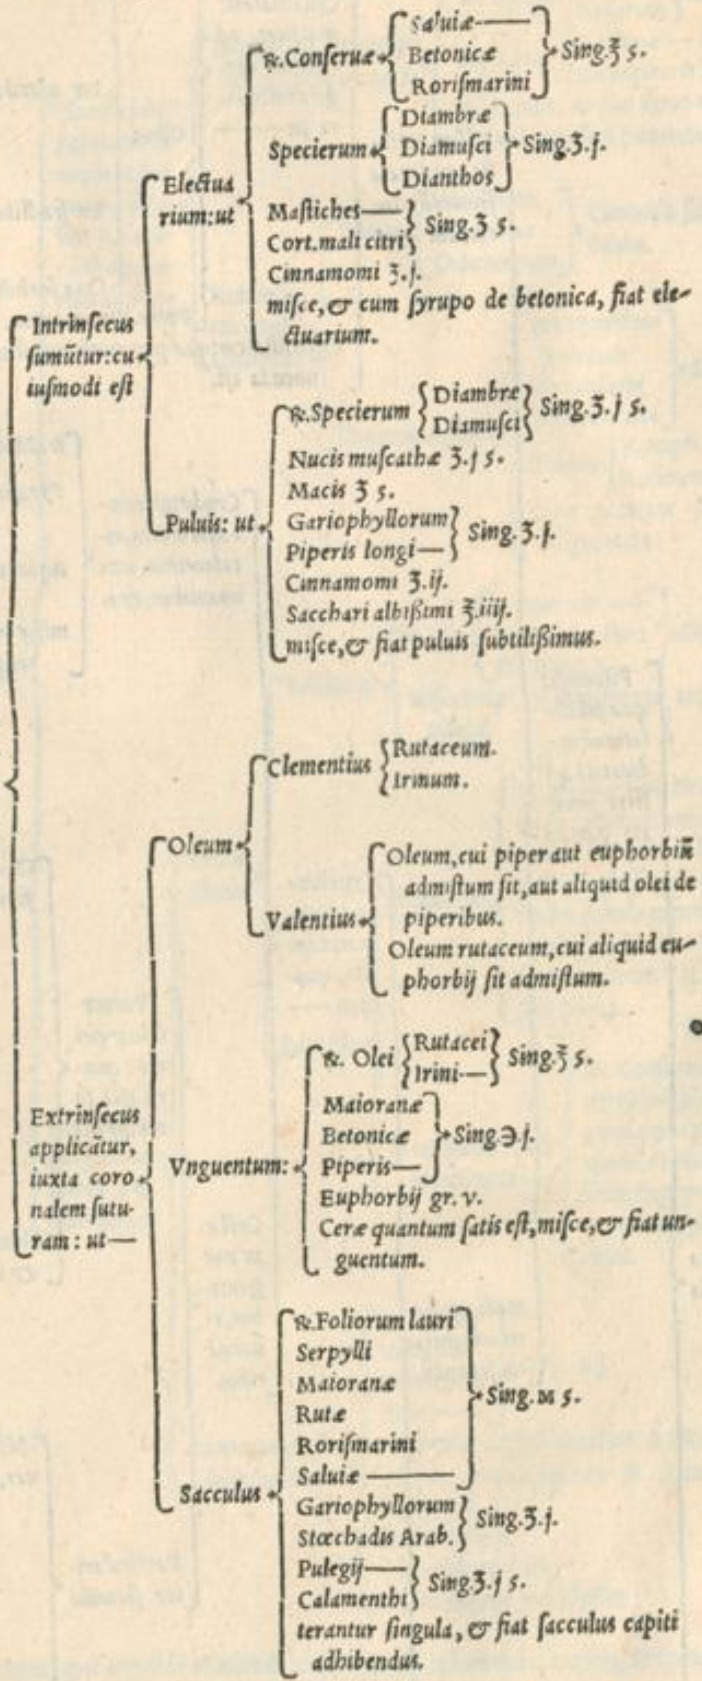 Intrinſecus
ſumūtur: cu
iuſmodi eſt
Electua
rium: ut
℞. Conſeruæ
Saluiæ
Betonicæ
Roriſmarini
Sing. ℥ s.
Specierum
Diambræ
Diamuſci
Dianthos
Sing. ʒ. j.
Maſtiches
Cort. mali citri
Sing. ʒ s.
Cinnamomi ʒ. j.
miſce, & cum ſyrupo de betonica, fiat ele-
ctuarium.
Puluis: ut
℞. Specierum
Diambræ
Diamuſci
Sing. ʒ. j s.
Nucis muſcathæ ʒ. j s.
Macis ʒ s.
Gariophyllorum
Piperis longi
Sing. ʒ. j.
Cinnamomi ʒ. ij.
Sacchari albiſſimi ℥. iiij.
miſce, & fiat puluis ſubtiliſſimus.
Extrinſecus
applicātur,
iuxta coro
nalem ſutu-
ram: ut
Oleum
Clementius
Rutaceum.
Irinum.
Valentius
Oleum, cui piper aut euphorbiū
admiſtum ſit, aut aliquid olei de
piperibus.
Oleum rutaceum, cui aliquid eu-
phorbij ſit admiſtum.
Vnguentum:
℞. Olei
Rutacei
Irini
Sing. ℥ s.
Maioranæ
Betonicæ
Piperis
Sing. ℈. j.
Euphorbij gr. v.
Ceræ quantum ſatis eſt, miſce, & fiat un-
guentum.
Sacculus
℞. Foliorum lauri
Serpylli
Maioranæ
Rutæ
Roriſmarini
Saluiæ
Sing. M s.
Gariophyllorum
Stœchadis Arab.
Sing. ʒ. j.
Pulegij
Calamenthi
Sing. ʒ. j s.
terantur ſingula, & fiat ſacculus capiti
adhibendus.